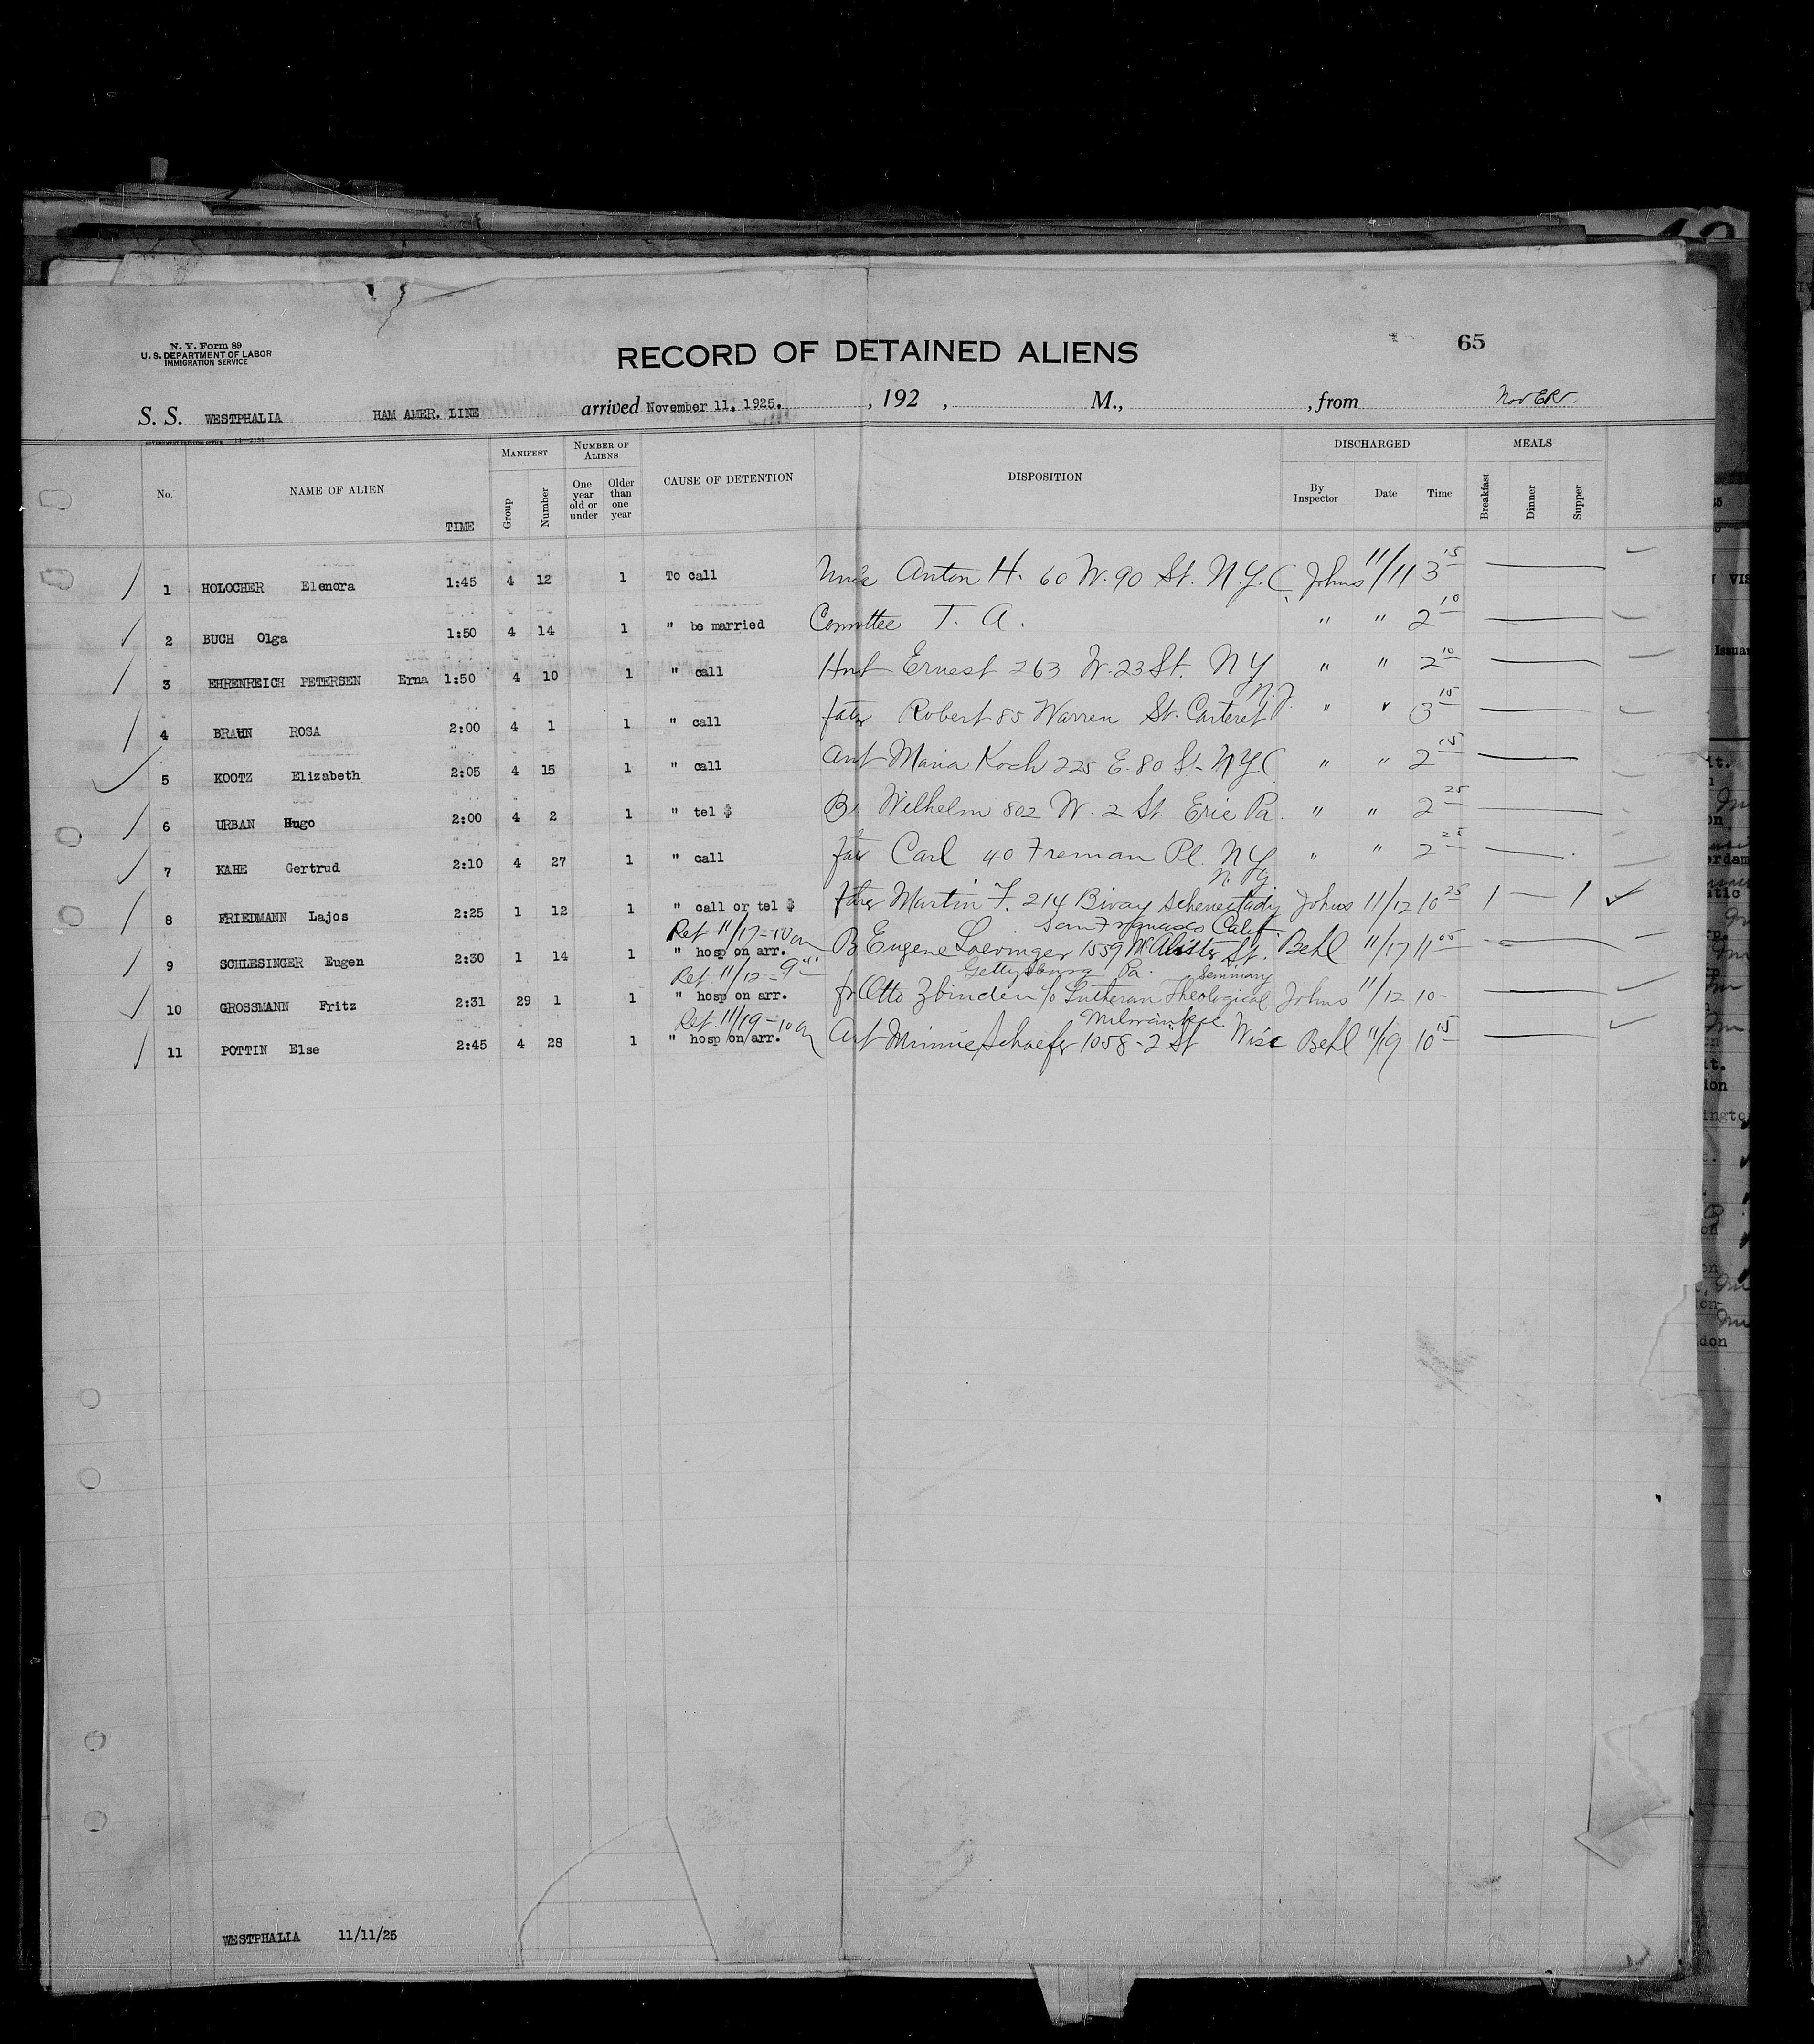 N. Y. Form 89
U. S. DEPARTMENT OF LABOR
IMMIGRATION SERVICE
RECORD OF DETAINED ALIENS
65
S. S. WESTPHALIA HAM AMER. LINE arrived November 11, 1925. , 192 , M., , from
No. NAME OF ALIEN TIME MANIFEST Group Number NUMBER OF ALIENS One year old or under Older than one year CAUSE OF DETENTION DISPOSITION DISCHARGED By Inspector Date Time MEALS Breakfast Dinner Supper
1 HOLOCHER Elenora 1:45 4 12 1 To call Anton H. 60 W. 90 St. N.Y.C. Johns 11/11 3 15
2 BUCH Olga 1:50 4 14 1 " be married Committee T. A. " " 2 10
3 EHRENREICH PETERSEN Erna 1:50 4 10 1 " call Ernest 263 W. 23 St. N Y " " 2 10
4 BRAUN ROSA 2:00 4 1 1 " call fatr Robert 85 Warren St. Carteret N.J. " " 3 15
5 KOOTZ Elizabeth 2:05 4 15 1 " call Ant Maria Koch 225 E. 80 St. N Y C " " 2 15
6 URBAN Hugo 2:00 4 2 1 " tel $ Br Wilhelm 802 W. 2 St. Erie Pa. " " 2 25
7 KAHE Gertrud 2:10 4 27 1 " call fatr Carl 40 Freman Pl. N Y " " 2 25
8 FRIEDMANN Lajos 2:25 1 12 1 " call or tel $ Martin F. 214 Bway Schenectady N. Y. Johns 11/12 10 25 1 — 1
Ret 11/17 - 10 am
9 SCHLESINGER Eugen 2:30 1 14 1 " hosp on arr. B Eugene Loevinger 1559 McAlister St. San Francisco Calif. Behl 11/17 11 05
Ret. 11/12 - 9
10 GROSSMANN Fritz 2:31 29 1 1 " hosp on arr. fr Otto Zbinden c/o Lutheran Theological Seminary Gettysburg Pa. Johns 11/12 10 -
Ret. 11/19 - 10 am
11 POTTIN Else 2:45 4 28 1 " hosp on arr. Ant Minnie Schaefer 1058 - 2 St Milwaukee Wisc Behl 11/19 10 15
WESTPHALIA 11/11/25